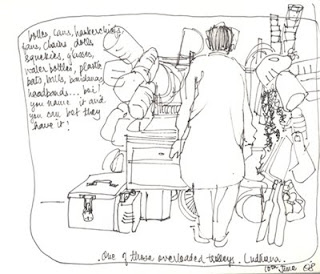 balls, cans, hankerchiefs,
fans, chains, dolls,
squeekies, glasses,
water bottles, plastic
bats, bills, bandanas
headbands... hei!
you name it and
you can bet they
have it!
One of those overloaded trolleys. Ludhiana.
10th June